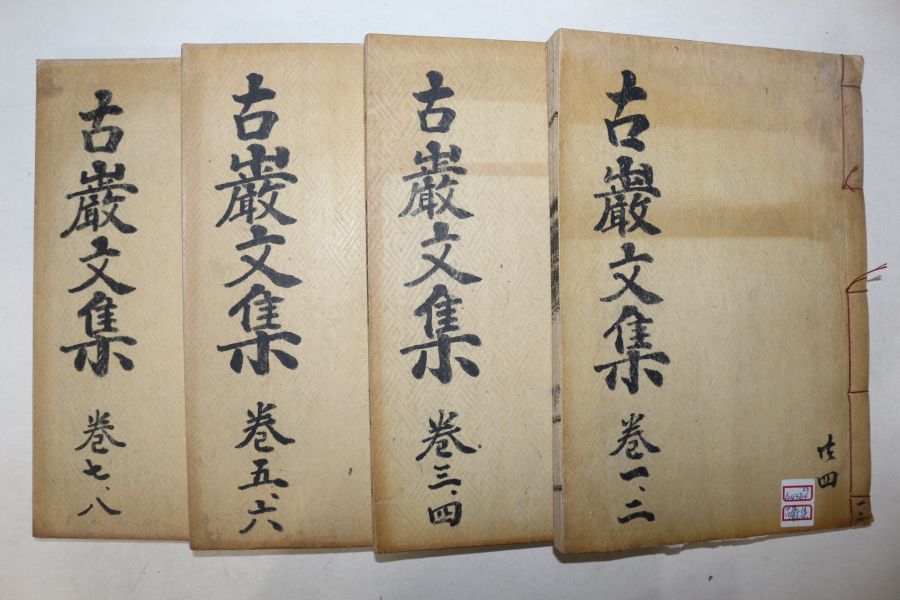 古巖文集 卷一、二
共四
一、二
古巖文集 卷三、四
古巖文集 卷五、六
古巖文集 卷七、八